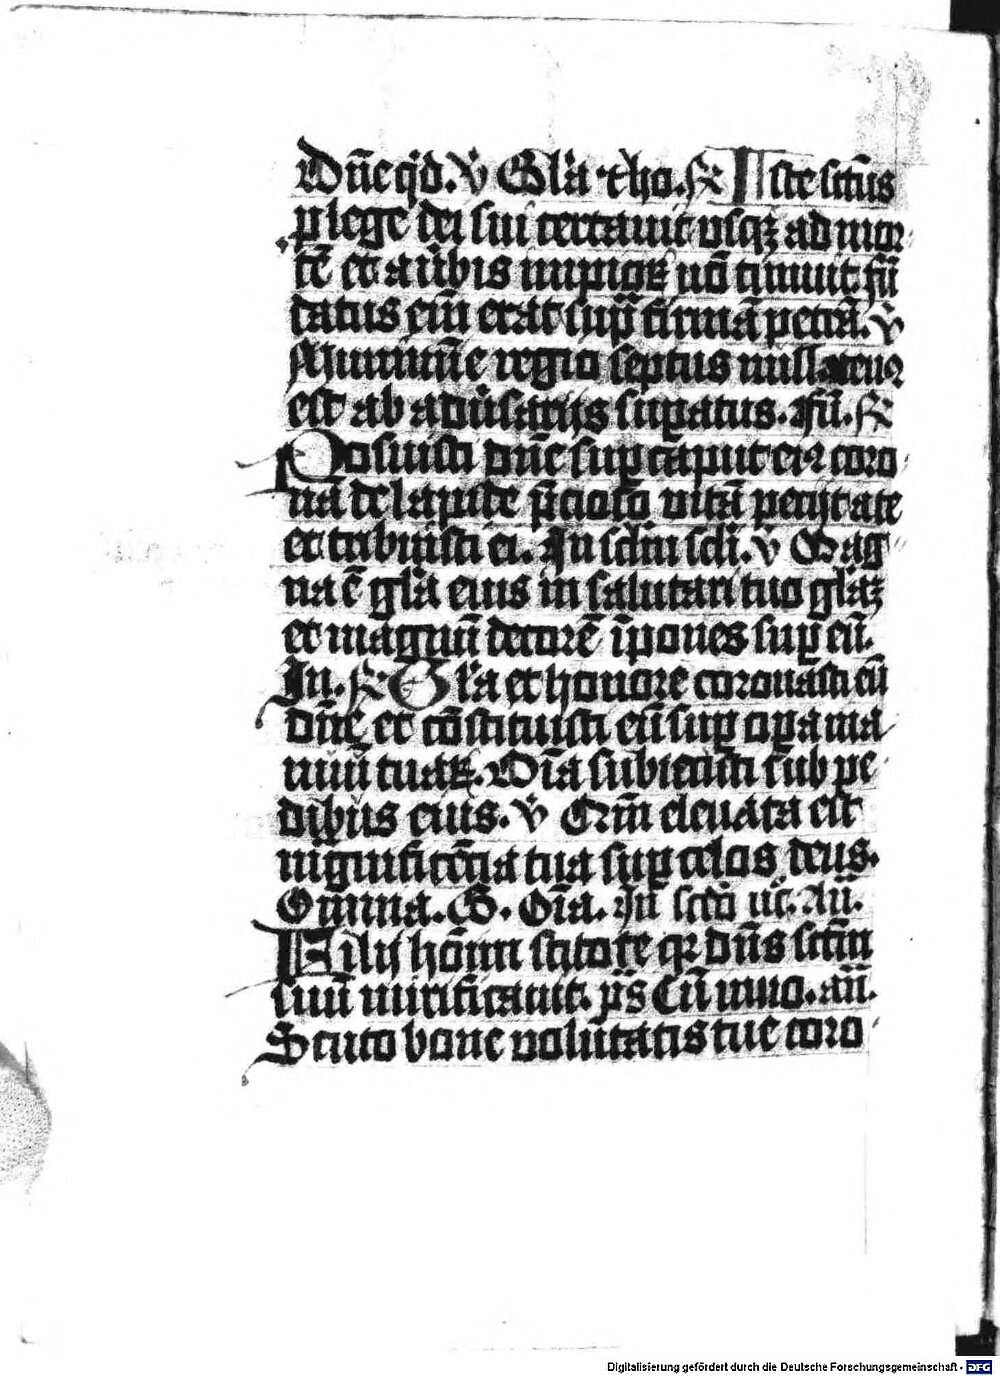 Dn̄e qd̄. v̄ Gl'a tho. ℟ Iste sct̄us
p lege dei sui certauit vsqꝫ ad mor
tē et a u̅bis impioꝝ nō timuit fū
datus eīn erat sup̄ firmā petrā. v̄
egio septus
est ab adu̅sarijs supatus. Fū. ℟
Posuisti dn̄e sup caput eiꝰ coro
na de lapide p̄cioso vitā pecijt a te
et tribuisti ei. In scl̄m scl̄i. v̄ Mag
na ē gl'a eius in salutari tuo gl'aꝫ
et magnū decorē īpones sup eū.
In. ℟ Gl'a et honore coronasti eū
dn̄e et cōstituisti eū sup opa ma
nuū tuaꝝ. Oīa subiecisti sub pe
dibus eius. v̄ Qm̄ eleuata est
mgnificēcia tua sup celos deus.
Omnia. G. Oīa. In scdō nc̄. Añ.
Filij hōim scitote qꝛ dn̄s sctm̄
suū mirificauit. ps̄ Cū inuo. añ.
Scuto bone volūtatis tue coro
Digitalisierung gefördert durch die Deutsche Forschungsgemeinschaft - DFG